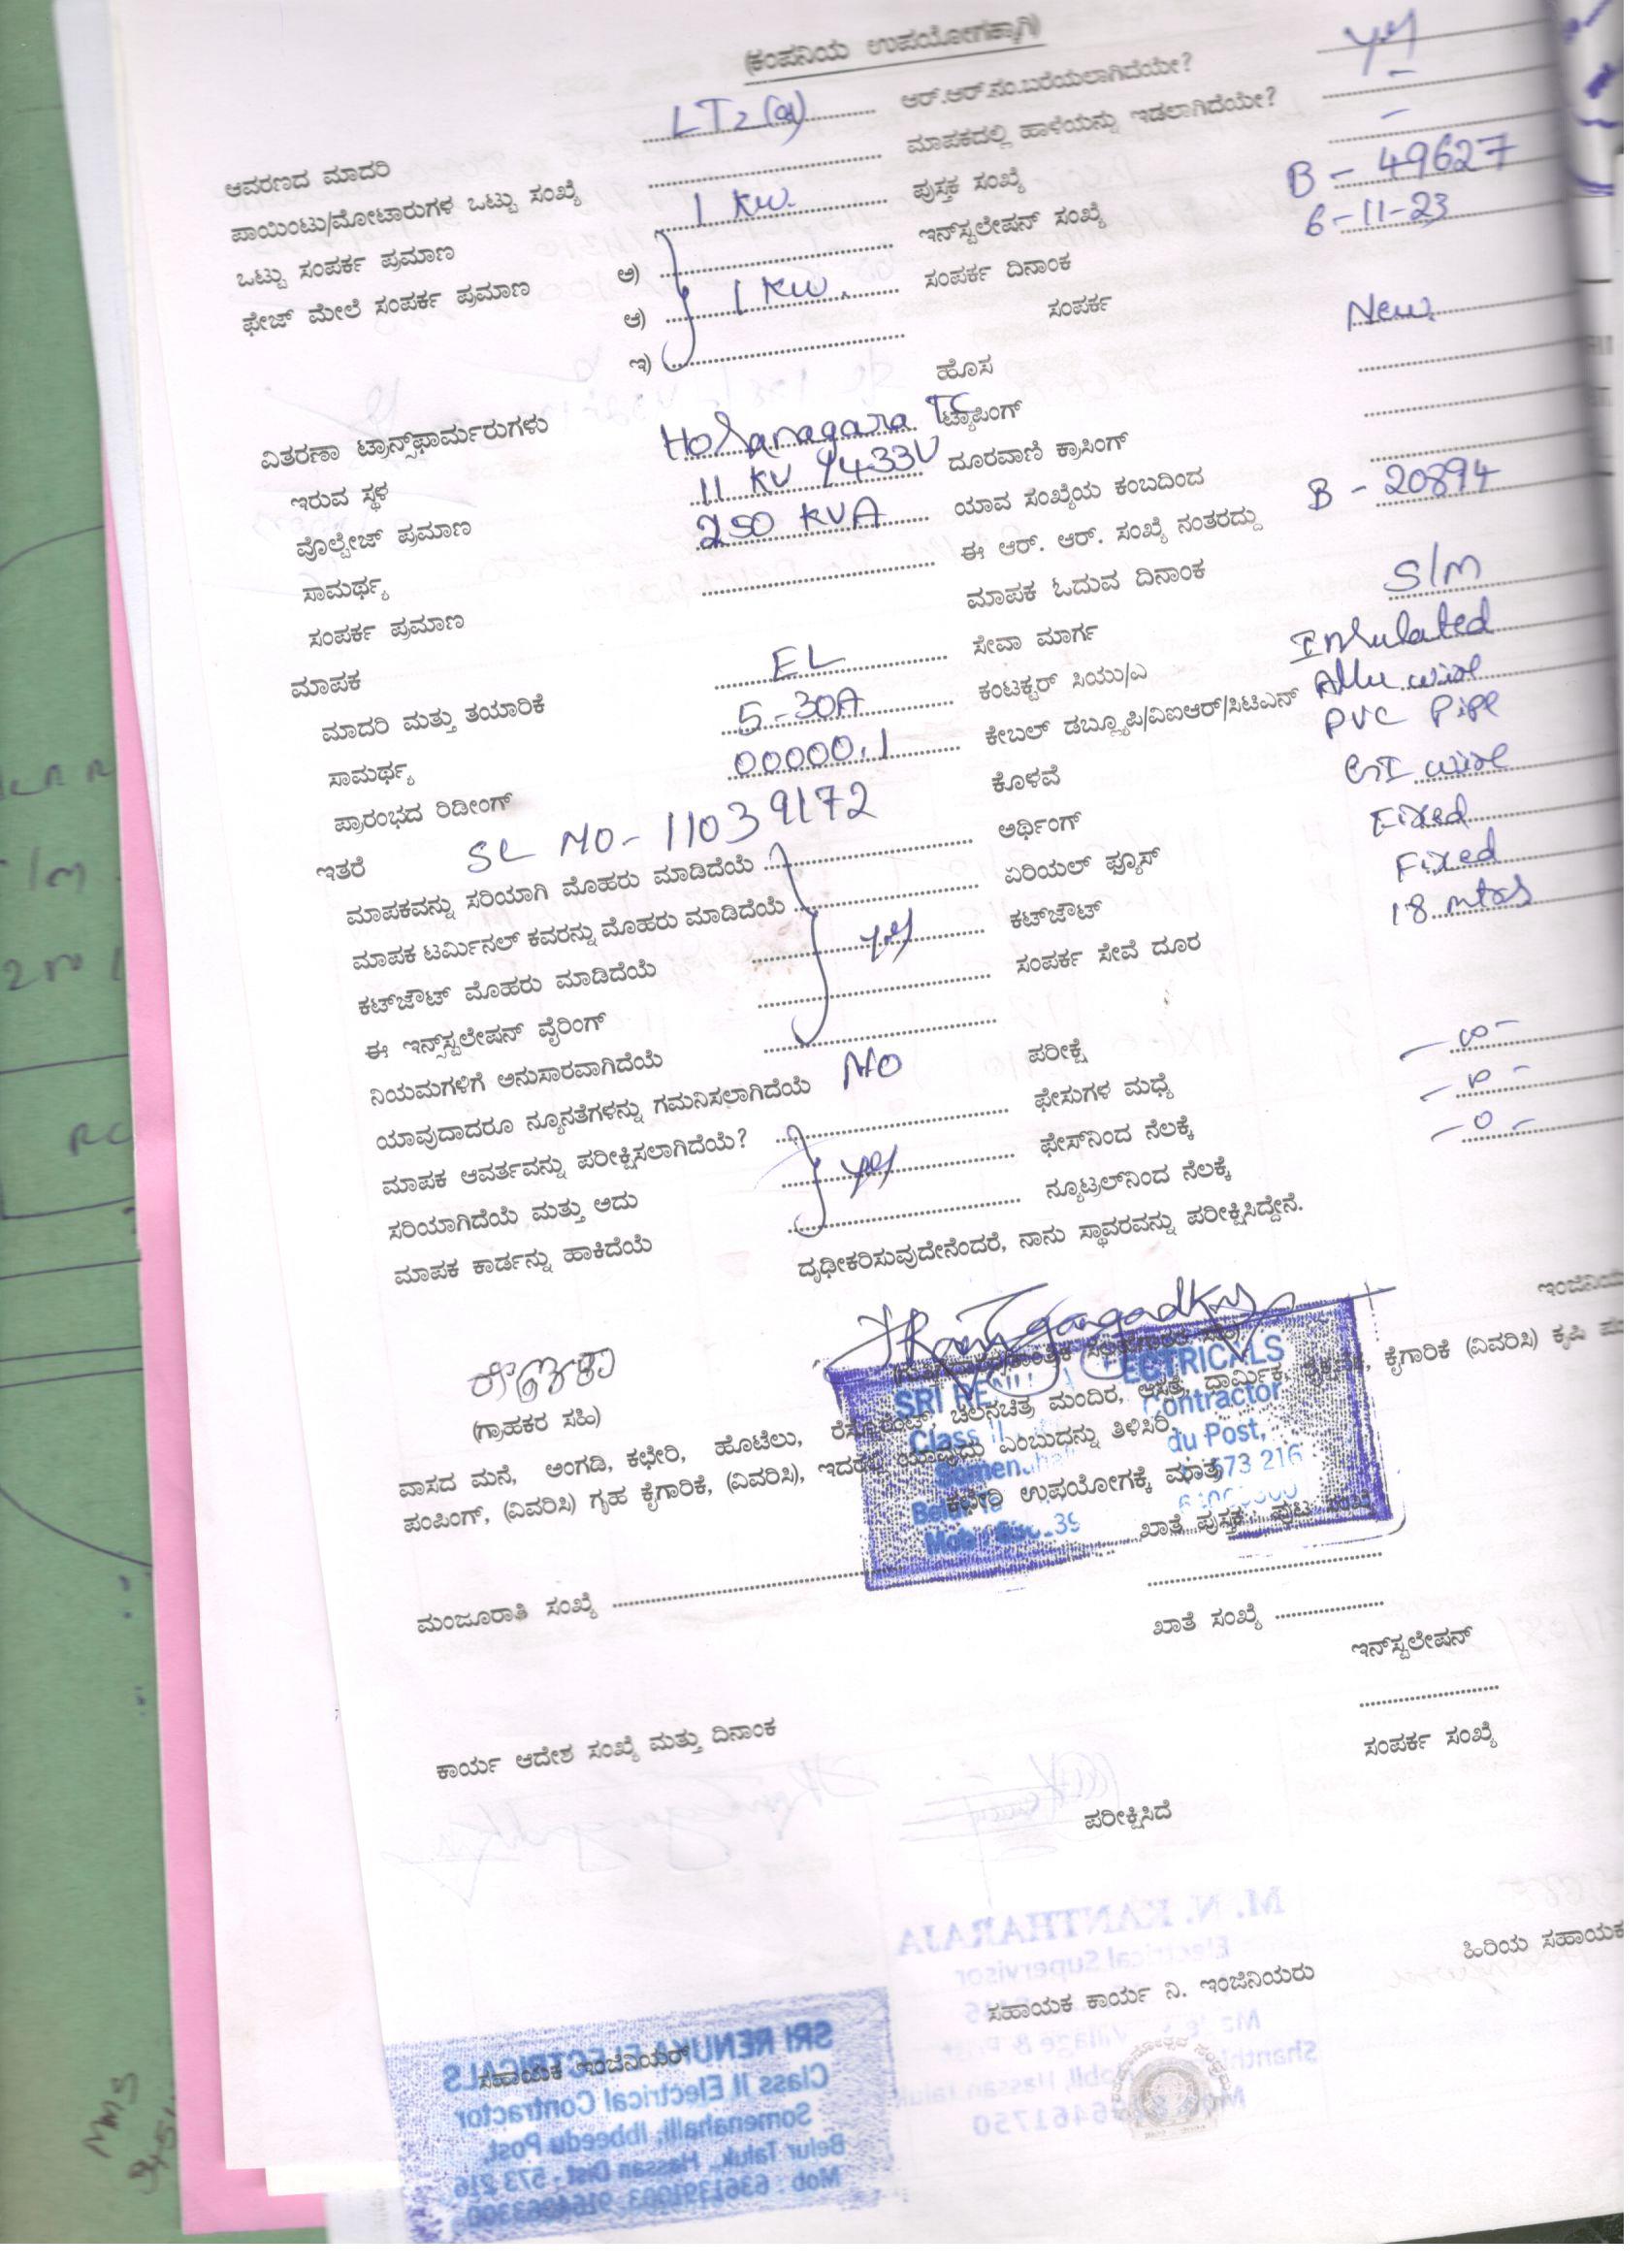 (ಕಂಪನಿಯ ಉಪಯೋಗಕ್ಕಾಗಿ)
ಆವರಣದ ಮಾದರಿ LT2(a) ಆರ್.ಆರ್.ನಂ.ಬರೆಯಲಾಗಿದೆಯೇ? yes
ಪಾಯಿಂಟು/ಮೋಟಾರುಗಳ ಒಟ್ಟು ಸಂಖ್ಯೆ ಮಾಪಕದಲ್ಲಿ ಹಾಳೆಯನ್ನು ಇಡಲಾಗಿದೆಯೇ? –
ಒಟ್ಟು ಸಂಪರ್ಕ ಪ್ರಮಾಣ 1 KW. ಪುಸ್ತಕ ಸಂಖ್ಯೆ –
ಫೇಜ್ ಮೇಲೆ ಸಂಪರ್ಕ ಪ್ರಮಾಣ ಅ) ಇನ್‌ಸ್ಟಲೇಷನ್ ಸಂಖ್ಯೆ B - 49627
ಆ) 1 KW. ಸಂಪರ್ಕ ದಿನಾಂಕ 6-11-23
ಇ) ಸಂಪರ್ಕ
ಹೊಸ New
ವಿತರಣಾ ಟ್ರಾನ್ಸ್‌ಫಾರ್ಮರುಗಳು
ಇರುವ ಸ್ಥಳ Hosanagara TC ಟ್ಯಾಪಿಂಗ್
ವೊಲ್ಟೇಜ್ ಪ್ರಮಾಣ 11 KV 433V ದೂರವಾಣಿ ಕ್ರಾಸಿಂಗ್
ಸಾಮರ್ಥ್ಯ 250 KVA ಯಾವ ಸಂಖ್ಯೆಯ ಕಂಬದಿಂದ
ಸಂಪರ್ಕ ಪ್ರಮಾಣ ಈ ಆರ್. ಆರ್. ಸಂಖ್ಯೆ ನಂತರದ್ದು B - 20894
ಮಾಪಕ ಮಾಪಕ ಓದುವ ದಿನಾಂಕ
ಮಾದರಿ ಮತ್ತು ತಯಾರಿಕೆ EL ಸೇವಾ ಮಾರ್ಗ S/m
ಸಾಮರ್ಥ್ಯ 5-30A ಕಂಟಕ್ಟರ್ ಸಿಯು/ಎ Insulated
ಪ್ರಾರಂಭದ ರಿಡೀಂಗ್ 00000.1 ಕೇಬಲ್ ಡಬ್ಲ್ಯೂಪಿ/ವಿಐಆರ್/ಸಿಟಿಎನ್ Allu wire
ಇತರೆ SL NO-11039172 ಕೊಳವೆ PVC Pipe
ಮಾಪಕವನ್ನು ಸರಿಯಾಗಿ ಮೊಹರು ಮಾಡಿದೆಯೆ ಅರ್ಥಿಂಗ್ GI wire
ಮಾಪಕ ಟರ್ಮಿನಲ್ ಕವರನ್ನು ಮೊಹರು ಮಾಡಿದೆಯೆ ಏರಿಯಲ್ ಫ್ಯೂಸ್ Fixed
ಕಟ್‌ಜೌಟ್ ಮೊಹರು ಮಾಡಿದೆಯೆ yes ಕಟ್‌ಜೌಟ್ Fixed
ಈ ಇನ್ಸ್‌ಸ್ಟಲೇಷನ್ ವೈರಿಂಗ್ ಸಂಪರ್ಕ ಸೇವೆ ದೂರ 18 mtrs
ನಿಯಮಗಳಿಗೆ ಅನುಸಾರವಾಗಿದೆಯೆ
ಯಾವುದಾದರೂ ನ್ಯೂನತೆಗಳನ್ನು ಗಮನಿಸಲಾಗಿದೆಯೆ NO ಪರೀಕ್ಷೆ
ಮಾಪಕ ಆವರ್ತವನ್ನು ಪರೀಕ್ಷಿಸಲಾಗಿದೆಯೆ? ಫೇಸುಗಳ ಮಧ್ಯೆ – ∞ –
ಸರಿಯಾಗಿದೆಯೆ ಮತ್ತು ಅದು yes ಫೇಸ್‌ನಿಂದ ನೆಲಕ್ಕೆ
ಮಾಪಕ ಕಾರ್ಡನ್ನು ಹಾಕಿದೆಯೆ ನ್ಯೂಟ್ರಲ್‌ನಿಂದ ನೆಲಕ್ಕೆ – 0 –
ದೃಢೀಕರಿಸುವುದೇನೆಂದರೆ, ನಾನು ಸ್ಥಾವರವನ್ನು ಪರೀಕ್ಷಿಸಿದ್ದೇನೆ.
(ಗ್ರಾಹಕರ ಸಹಿ)
ವಾಸದ ಮನೆ, ಅಂಗಡಿ, ಕಛೇರಿ, ಹೊಟೆಲು, ರೆಸ್ಟೋರೆಂಟ್, ಚಲನಚಿತ್ರ ಮಂದಿರ, ಆಸ್ಪತ್ರೆ, ಧಾರ್ಮಿಕ, ಕೈಗಾರಿಕೆ (ವಿವರಿಸಿ) ಕೃಷಿ
ಪಂಪಿಂಗ್, (ವಿವರಿಸಿ) ಗೃಹ ಕೈಗಾರಿಕೆ, (ವಿವರಿಸಿ), ಇದರಲ್ಲಿ ಯಾವುದು ಎಂಬುದನ್ನು ತಿಳಿಸಿರಿ.
ಕಛೇರಿ ಉಪಯೋಗಕ್ಕೆ ಮಾತ್ರ
SRI RE ECTRICALS
Class II Contractor
Somenahal du Post,
Belur 573 216
Mob
ಮಂಜೂರಾತಿ ಸಂಖ್ಯೆ ಖಾತೆ ಪುಸ್ತಕ ಪುಟ ಸಂಖ್ಯೆ
ಖಾತೆ ಸಂಖ್ಯೆ
ಇನ್‌ಸ್ಟಲೇಷನ್
ಕಾರ್ಯ ಆದೇಶ ಸಂಖ್ಯೆ ಮತ್ತು ದಿನಾಂಕ
ಸಂಪರ್ಕ ಸಂಖ್ಯೆ
ಪರೀಕ್ಷಿಸಿದೆ
ಹಿರಿಯ ಸಹಾಯಕ
ಸಹಾಯಕ ಕಾರ್ಯ ನಿ. ಇಂಜಿನಿಯರು
ಸಹಾಯಕ ಇಂಜಿನಿಯರ್
M. N. KANTHARAJA
Electrical Supervisor
SRI RENUKA ELECTRICALS
Class II Electrical Contractor
Somenahalli, Ibbeedu Post,
Belur Taluk, Hassan Dist - 573 216